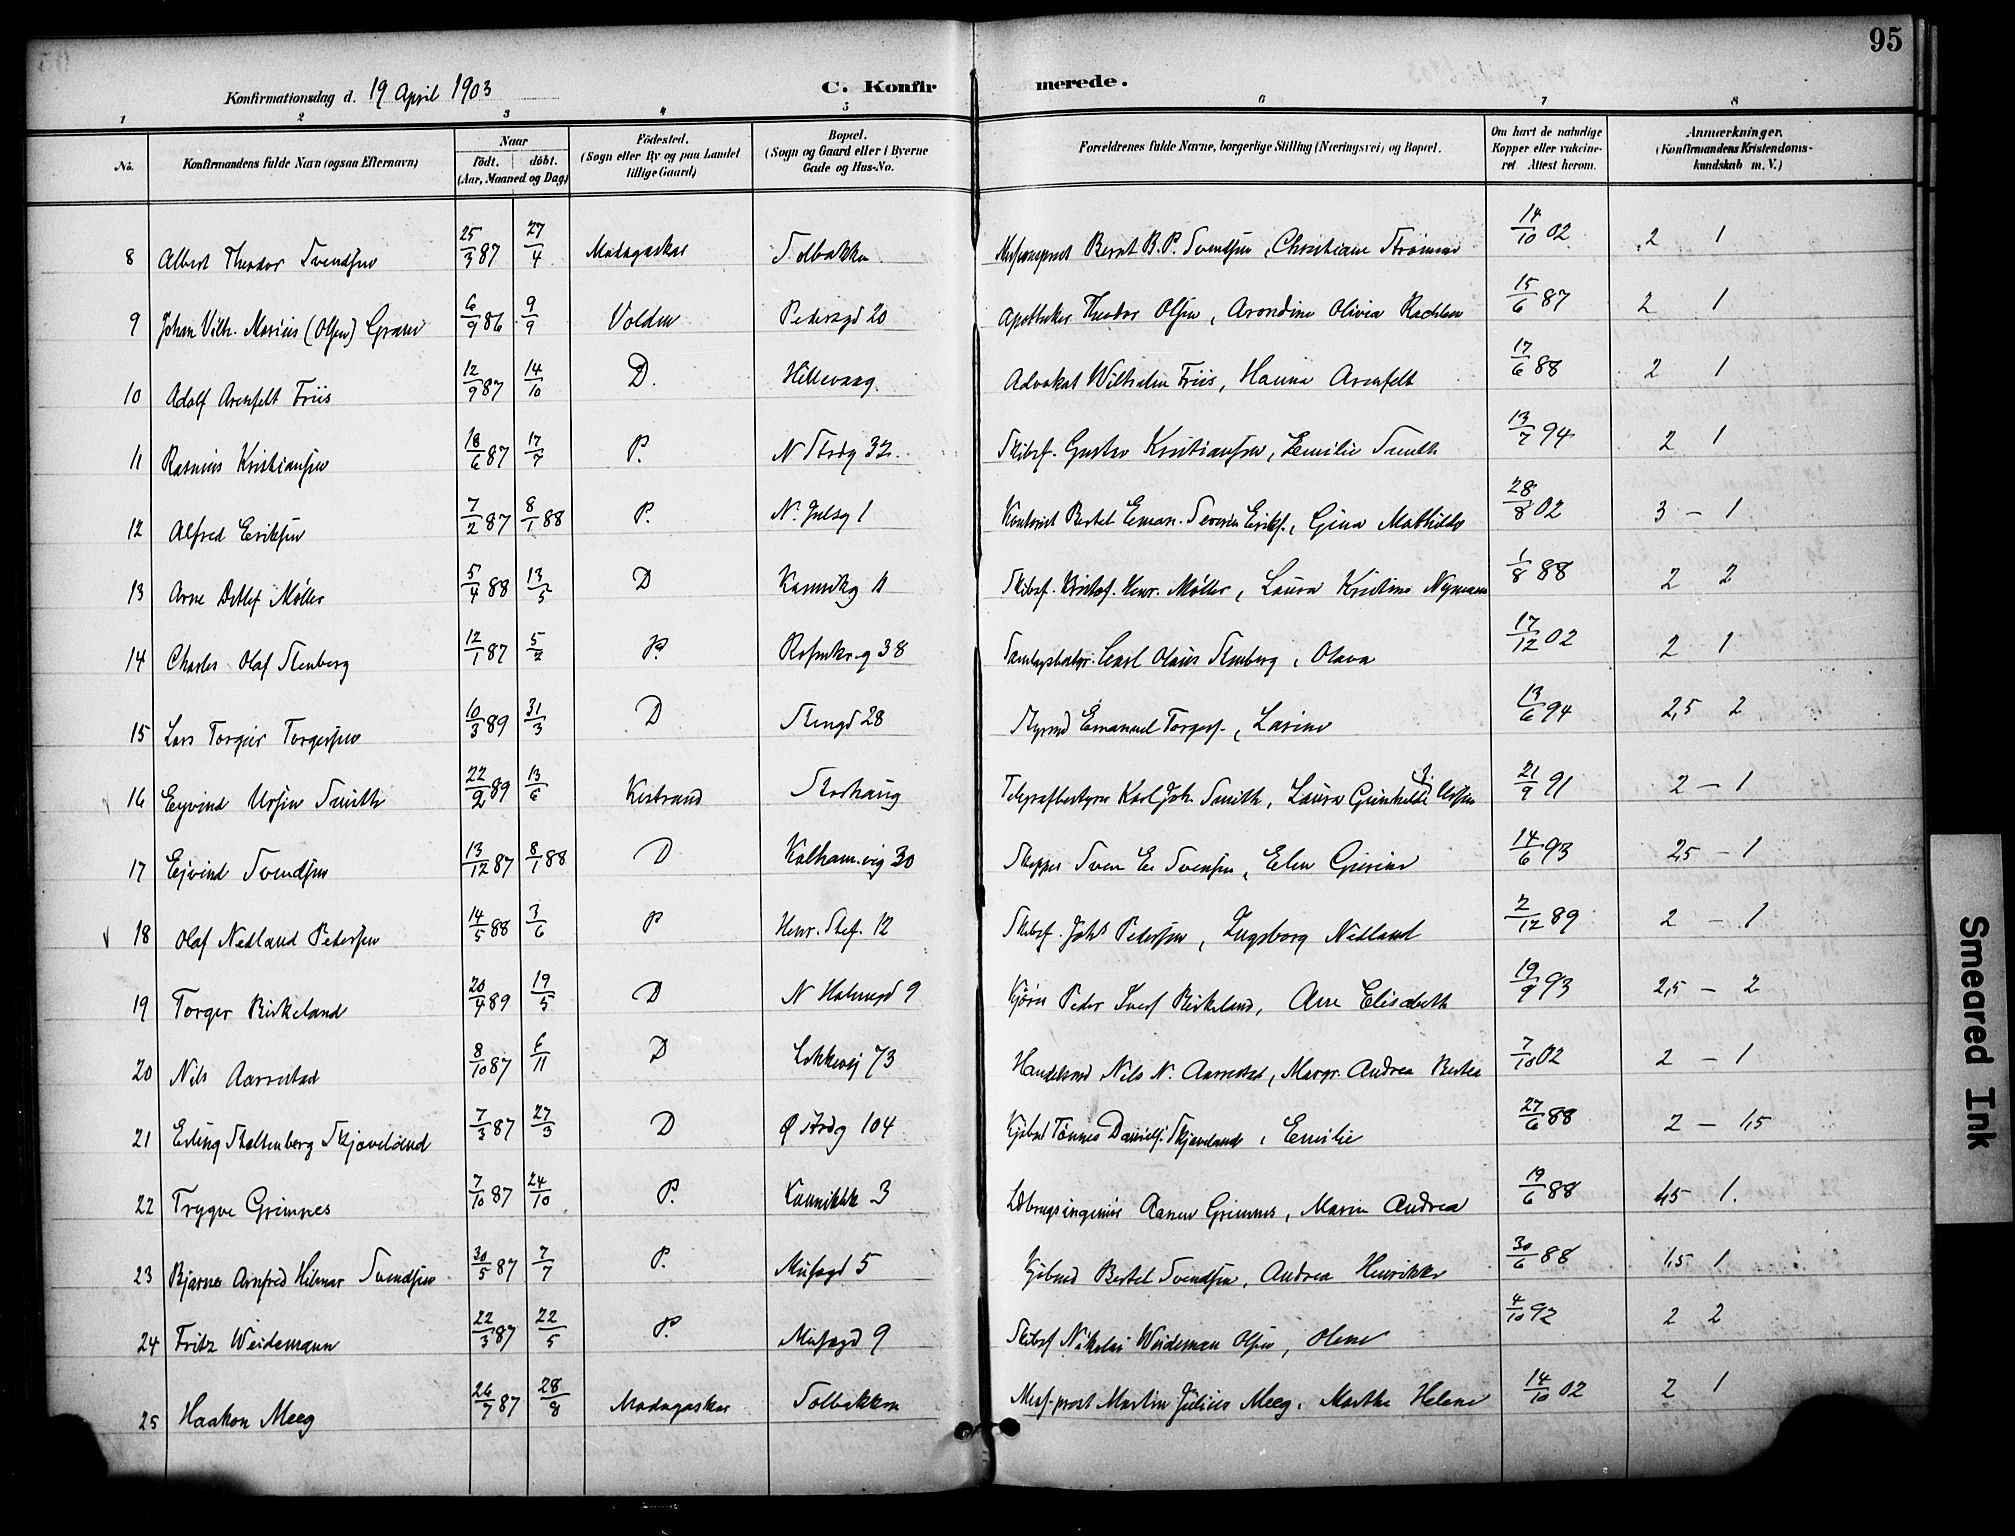 95
Konfirmationsdag d. 19 April 1903
C. Konfirmerede.
1 2 3 4 5 6 7 8
No.
Konfirmandens fulde Navn (ogsaa Efternavn)
Naar
födt. döbt.
(Aar, Maaned og Dag)
Födested.
(Sogn eller By og paa Landet
tillige Gaard)
Bopæl.
(Sogn og Gaard eller i Byerne
Gade og Hus-No.
Forældrenes fulde Navne, borgerlige Stilling (Næringsvei) og Bopæl.
Om havt de naturlige
Kopper eller vakcine-
ret Attest herom.
Anmærkninger.
(Konfirmandens Kristendoms-
kundskab m. V.)
8 Albert Theodor Svendsen 25/3 87 27/4 Madagaskar Solbakken Bernt B. P. Svendsen, Christiane Strømme 14/10 02 2 1
9 Johan Vilh. Marius (Olsen) Gram 6/9 86 9/9 Volden Pedersgd 20 Apotheker Theodor Olsen, Arondine Olivia 15/6 87 2 1
10 Adolf Arenfelt Friis 12/9 87 14/10 D. Hillevaag Advokat Wilhelm Friis, Hanna Arenfelt 17/6 88 2 1
11 Rasmus Kristiansen 18/6 87 17/7 P. N Strdg 32 Skibsf. Gustav Kristiansen, Emilie Smith 13/7 94 2 1
12 Alfred Eriksen 7/2 87 8/1 88 P. 1 Kontorist Bertel Eman. Severin Eriks., Gina Mathilde 28/8 02 3 - 1
13 Arne Detlef Møller 5/4 88 13/5 D Kannikg 11 Skibsf. Kristof. Henr. Møller, Laura Kristine Nymann 1/8 88 2 2
14 Charles Olaf Stenberg 12/1 87 5/2 P. Rosenkr. g 38 Carl Olaus Stenberg, Olava 17/12 02 2 1
15 Lars Torgeir Torgersen 10/3 89 31/3 D Stengd 28 Styrmd Emanuel Torgers., Lavine 13/6 94 2,5 2
16 Eyvind Ursin Smith 22/2 89 13/6 Kistrand Storhaug Telegrafbestyrer Karl Joh. Smith, Laura Gunhilde J. Ursin 21/9 91 2 - 1
17 Ejvind Svendsen 13/12 87 8/1 88 D Kalham.vig 30 Skipper Sven Svensen, Elen Gurine 14/6 93 2,5 - 1
18 Olaf Nedland Petersen 14/5 88 3/6 P Henr. Stef. 12 Skibsf. Johs Petersen, Ingeborg Nedland 2/12 89 2 - 1
19 Torger Birkeland 20/4 89 19/5 D N Holmegd 9 Peder Birkeland, Ane Elisabeth 19/9 93 2,5 - 2
20 Nils Aarrestad 8/10 87 6/11 D Løkkevej 73 Handelsmd Nils N. Aarrestad, Margr. Andrea Bertea 7/10 02 2 - 1
21 Erling Stoltenberg Skjæveland 7/3 87 27/3 D Ø Strdg 104 Kjøbmd Tønnes Daniels. Skjæveland, Emilie 27/6 88 2 - 1,5
22 Trygve Grimnes 7/10 87 24/10 P. Kannikbk 3 Ldbrugsingeniør Aanen Grimnes, Maren Andrea 19/6 88 1,5 1.
23 Bjarne Arnfred Hilmar Svendsen 30/5 87 7/7 P. Musegd 5 Kjøbmd Bertel Svendsen, Andrea Henrikke 30/6 88 1,5 1
24 Fritz Weidemann 22/3 87 22/5 P. Musegd 9 Skibsf Nikolai Weideman Olsen, Olene 4/10 92 2 2
25 Haakon Meeg 26/7 87 28/8 Madagaskar Solbakken Miss.prest Martin Julius Meeg, Marthe Helene 14/10 02 2 1
Smeared Ink